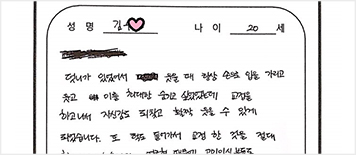 성 명 김 나 이 20 세
덧니가 있었어서 웃을 때 항상 손으로 입을 가리고
웃고 이를 최대한 숨기고 살았었는데 교정을
하고나서 자신감도 되찾고 활짝 웃을 수 있게
되었습니다. 또 턱도 들어가서 교정 한 것을 절대